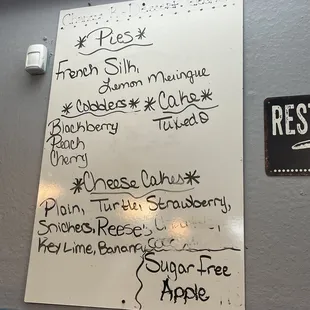 *Pies*
French Silk,
Lemon Meringue
*Cobblers* *Cake*
Blackberry Tuxedo
Peach
Cherry
*Cheese Cakes*
Plain, Turtle, Strawberry,
Snickers, Reese's,
Key Lime, Banana
Sugar Free
Apple
REST